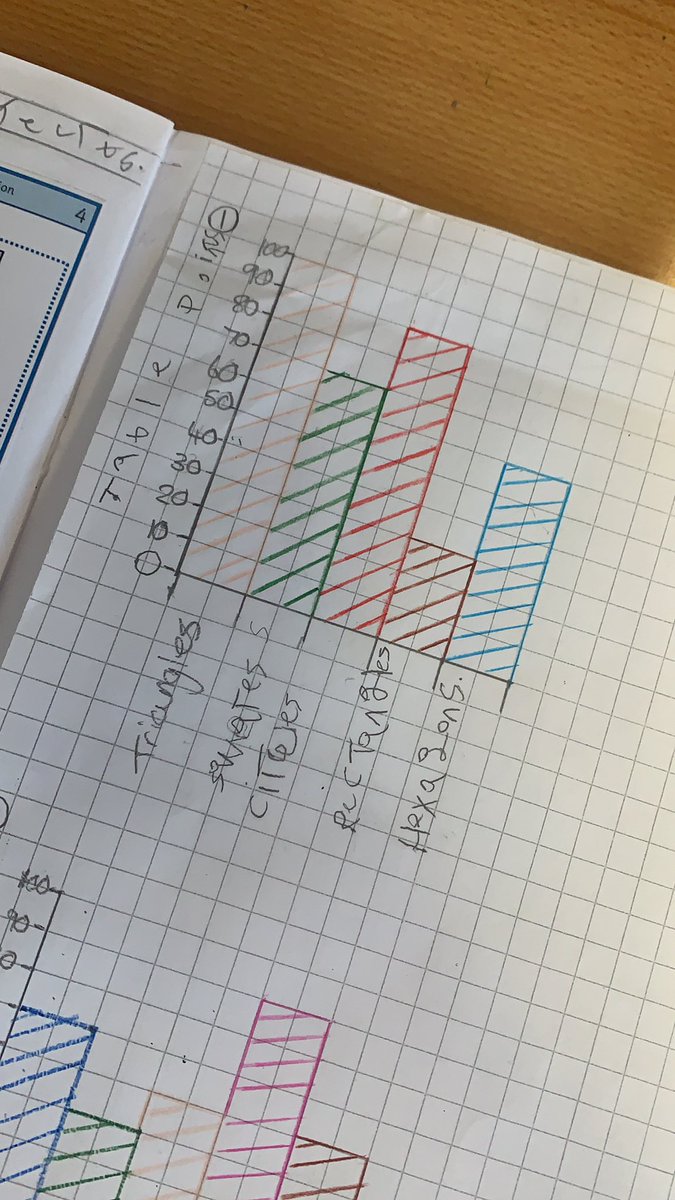 4
Table Points
100
90
80
70
60
50
40
30
20
10
0
Triangles
Circles
Rectangles
Hexagons.
100
90